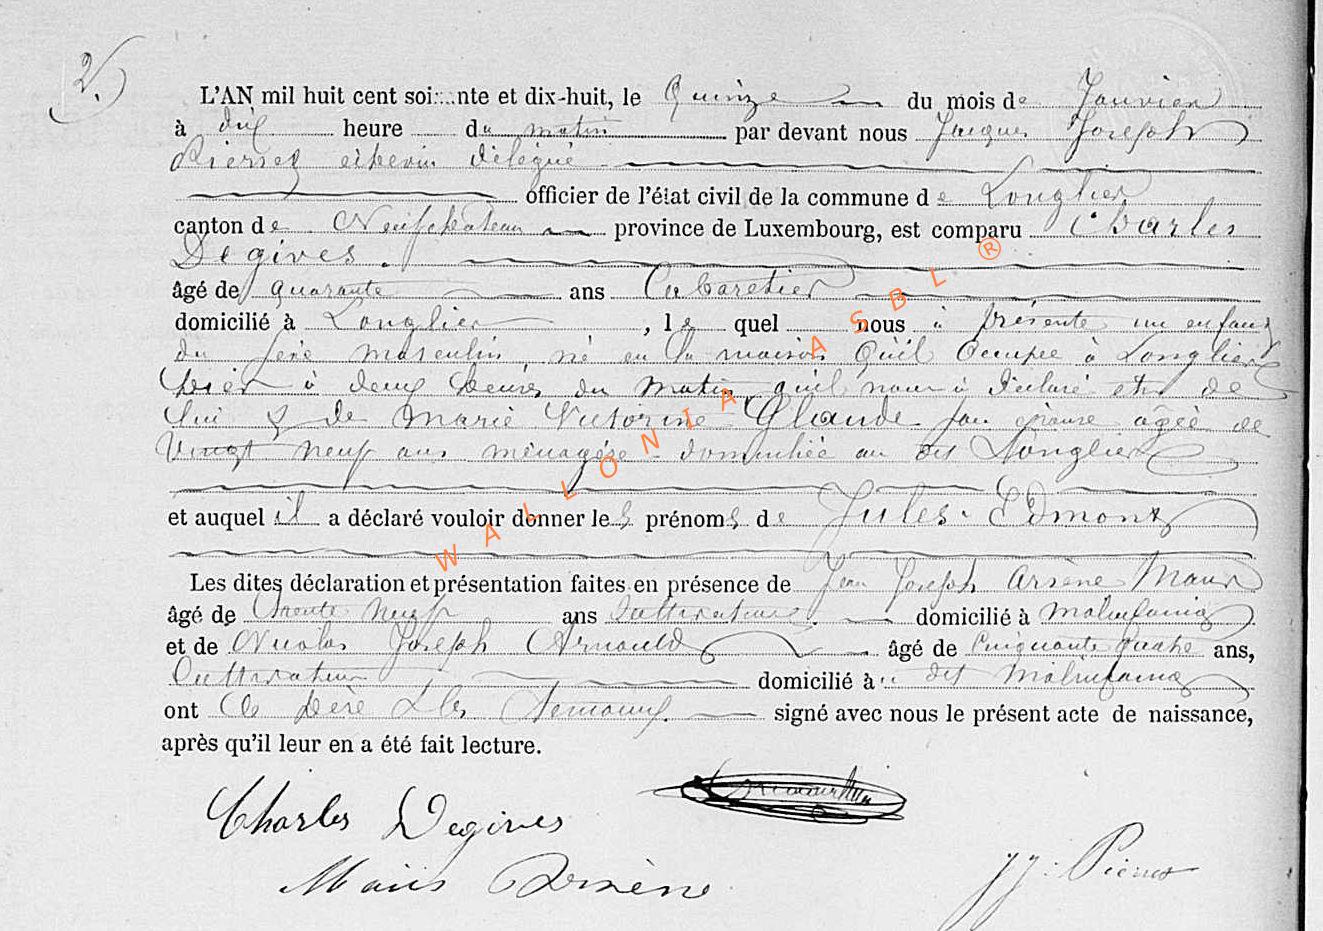 2.)
L'AN mil huit cent soi...nte et dix-huit, le Quinze du mois de Janvier
à dix heure du matin par devant nous Jacques Joseph
Pierret echevin délégué
officier de l'état civil de la commune de Longlier
canton de Neufchateau province de Luxembourg, est comparu Charles
Degives.
âgé de quarante ans Cabaretier
domicilié à Longlier, le quel nous à présenté un enfant
du sexe masculin, né en la maison qu'il occupe à Longlier
hier à deux heures du matin, qu'il nous à déclaré etre de
lui & de Marie Victorine Glaude son épouse agée de
Vingt neuf ans ménagère domiciliée au dit Longlier
et auquel il a déclaré vouloir donner les prénoms de Jules Edmont
Les dites déclaration et présentation faites en présence de Jean Joseph Arsène Maus
âgé de trente neuf ans cultivateur domicilié à Molinfaing
et de Nicolas Joseph Arnould âgé de Cinquante quatre ans,
Cultivateur domicilié à dit Molinfaing
ont le père & les témoins signé avec nous le présent acte de naissance,
après qu'il leur en a été fait lecture.
Charles Degives
Maus Arsène
J J. Pierret
WALLONIA ASBL ®